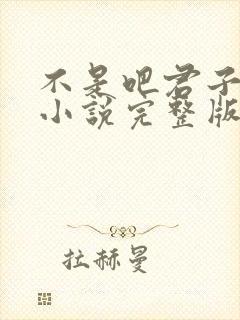 不是吧君子
小说完整版
拉赫曼